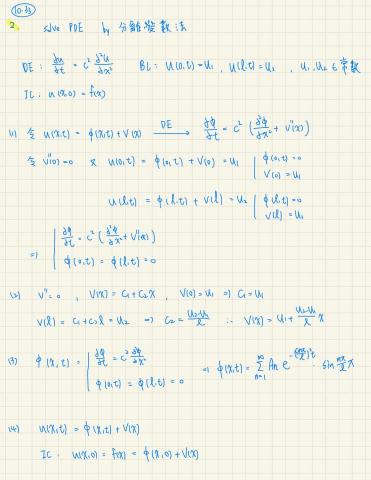 10-33
2. solve PDE by 分離變數法
DE : ∂u/∂t = c² ∂²u/∂x² BC : u(0,t)=u₁ , u(l,t)=u₂ , u₁,u₂ ∈ 常數
IC : u(x,0) = f(x)
(1) 令 u(x,t) = ϕ(x,t)+V(x) DE→ ∂ϕ/∂t = c² (∂²ϕ/∂x² + V''(x))
令 V''(x)=0 & u(0,t) = ϕ(0,t) + V(0) = u₁ | ϕ(0,t)=0
V(0)=u₁
u(l,t) = ϕ(l,t) + V(l) = u₂ | ϕ(l,t)=0
V(l)=u₂
⇒ | ∂ϕ/∂t = c² (∂²ϕ/∂x² + V''(x))
ϕ(0,t) = ϕ(l,t) = 0
(2) V''=0 , V(x) = c₁+c₂x , V(0)=u₁ ⇒ c₁=u₁
V(l) = c₁+c₂l = u₂ → c₂ = (u₂-u₁)/l ∴ V(x) = u₁ + (u₂-u₁)/l x
(3) ϕ(x,t) = | ∂ϕ/∂t = c² ∂²ϕ/∂x² ⇒ ϕ(x,t) = Σ_{n=1}^{∞} An e^{-(cnπ/l)²t} · sin nπ/l x
ϕ(0,t) = ϕ(l,t) = 0
(4) u(x,t) = ϕ(x,t) + V(x)
IC : u(x,0) = f(x) = ϕ(x,0) + V(x)